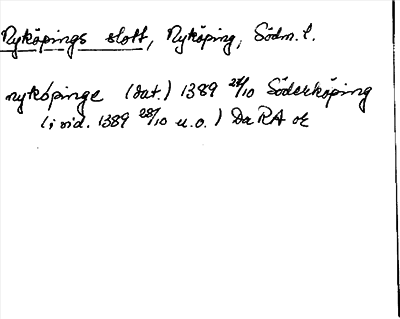 Nyköpings slott, Nyköping, Södm. l.
nyköpinge (dat.) 1389 28/10 Söderköping
(i vid. 1389 28/10 u.o.) Da RA or